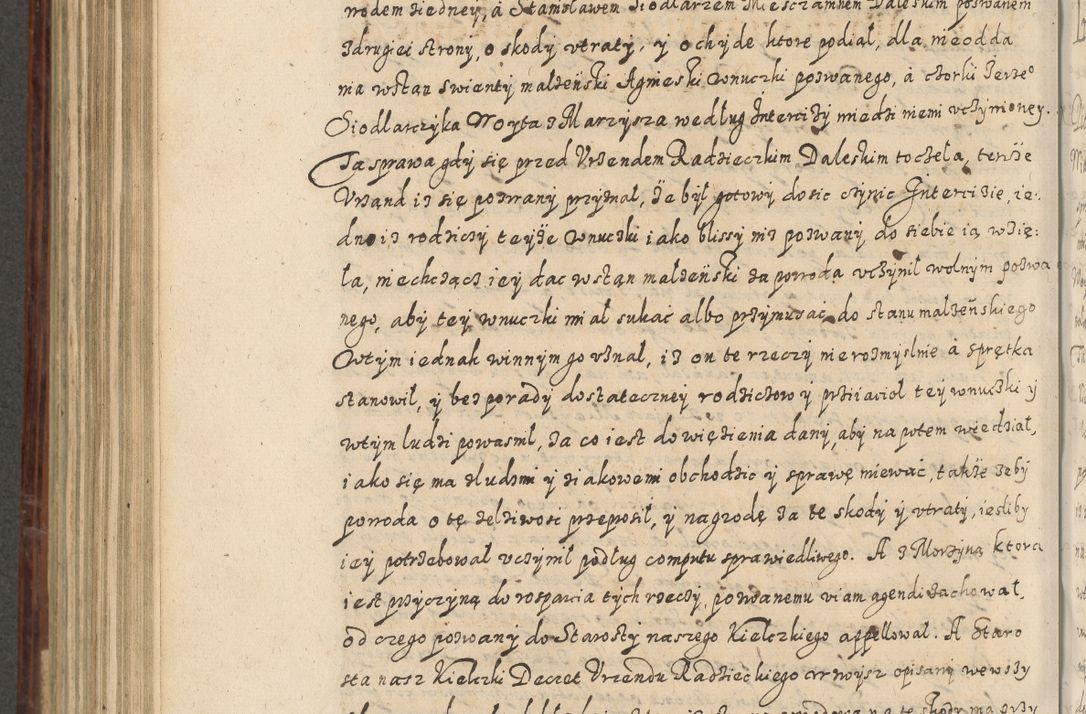 rodem ziedney, á Stanisławem Siodlarzem Miesczaninem Daleskim pozwanem
z drugiei strony, o skody, vtraty, y ochyde ktore podiał, dla nieodda
nia wstan swienty małzeński Agnieski wnuczki pozwanego, á czorki Ierze°
Siodlarczyka Woyta z Marzysza według Interciży miedzi niemi vczynioney.
Ta sprawa gdy się przed Vrzendem Radzieczkim Daleskim toczeła, tenże
Vrzand iz się pozwany przyznał, że był gotowy dosic czynic Intercizie, ie:
dno iz rodziczy teyże wnuczki iako blissy niz pozwany do siebie ią wzię:
la, niechcząci iey dac wstan małzeński za powoda vczynił wolnym pozwa
nego, aby tey wnuczki miał sukać albo przymusać do stanu małzeńskiego
Wtym iednak winnym go vznał, iz on te rzeczy nierozmyslnie á sprętka
stanowił, y bez porady dostateczney rodziczow y prziiacioł tey wnuczki y
wtym ludzi powasnił, za co iest do więzienia dany, aby na potem wiedział,
iako się ma zludzmi y ziakowemi obchodzic y sprawę miewać, także żeby
powoda o tę zelziwosc przeprosił, y nagrodę za te skody y vtraty, iesliby
iey potrzebował vczynił podług computu sprawiedliwego. A z Morzyną ktora
iest przyczyną do rosparcia tych rzeczy, pozwanemu viam agendi zachował,
od czego pozwany do Starosty naszego Kielczkiego appellował. A Staro
sta nasz Kielczki Decret Vrzendu Radzieckiego crwoysz opisany wewszy